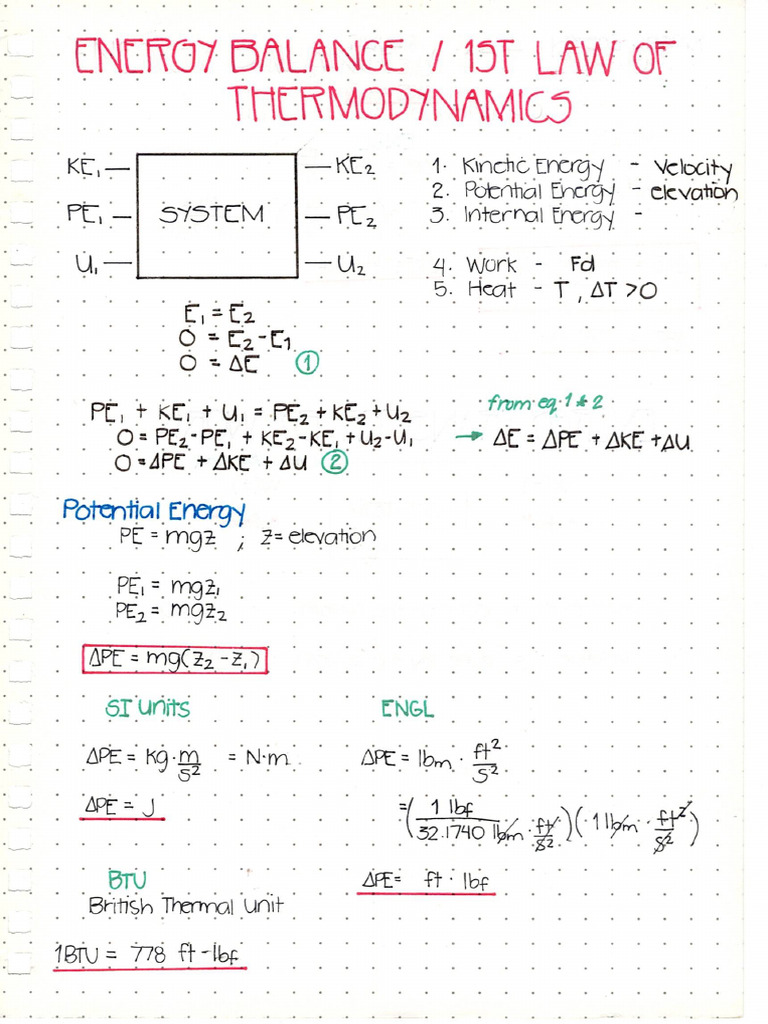 ENERGY BALANCE / 1ST LAW OF
THERMODYNAMICS
KE₁ — SYSTEM — KE₂
PE₁ — — PE₂
U₁ — — U₂
1. Kinetic Energy - Velocity
2. Potential Energy - elevation
3. Internal Energy -
4. Work - Fd
5. Heat - T, ΔT > 0
E₁ = E₂
0 = E₂ - E₁
0 = ΔE ①
PE₁ + KE₁ + U₁ = PE₂ + KE₂ + U₂
0 = PE₂ - PE₁ + KE₂ - KE₁ + U₂ - U₁
0 = ΔPE + ΔKE + ΔU ②
from eq. 1 & 2
→ ΔE = ΔPE + ΔKE + ΔU
Potential Energy
PE = mgz ; z = elevation
PE₁ = mgz₁
PE₂ = mgz₂
ΔPE = mg(z₂ - z₁)
SI Units
ΔPE = kg · m/s² = N·m
ΔPE = J
ENGL
ΔPE = lbm · ft²/s²
= (1 lbf / 32.1740 lbm · ft/s²)(1 lbm · ft²/s²)
ΔPE = ft · lbf
BTU
British Thermal Unit
1BTU = 778 ft-lbf